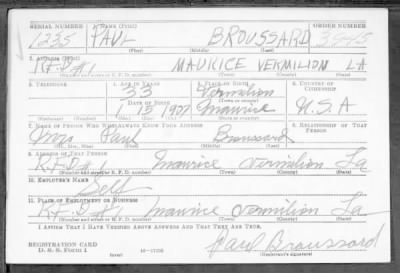 SERIAL NUMBER 1. NAME (Print) ORDER NUMBER
1235 PAUL BROUSSARD
(First) (Middle) (Last)
2. ADDRESS (Print)
R.F.D. #1 MAURICE VERMILION LA
(Town) (County) (State)
3. TELEPHONE 4. AGE IN YEARS 5. PLACE OF BIRTH 6. COUNTRY OF CITIZENSHIP
33 Vermilion
DATE OF BIRTH (Town or county)
1 15 1907 Maurice U.S.A
(Mo.) (Day) (Yr.) (State or country)
7. NAME OF PERSON WHO WILL ALWAYS KNOW YOUR ADDRESS 8. RELATIONSHIP OF THAT PERSON
Mrs Paul Broussard
(Mr., Mrs., Miss) (First) (Middle) (Last)
9. ADDRESS OF THAT PERSON
R.F.D. 1 Maurice Vermilion La
(Number and street or R. F. D. number) (Town) (County) (State)
10. EMPLOYER'S NAME
Self
11. PLACE OF EMPLOYMENT OR BUSINESS
R.F.D. 1 Maurice Vermilion La
(Number and street or R. F. D. number) (Town) (County) (State)
I AFFIRM THAT I HAVE VERIFIED ABOVE ANSWERS AND THAT THEY ARE TRUE.
REGISTRATION CARD
D. S. S. Form 1 (over) 16-17105 Paul Broussard
(Registrant's signature)